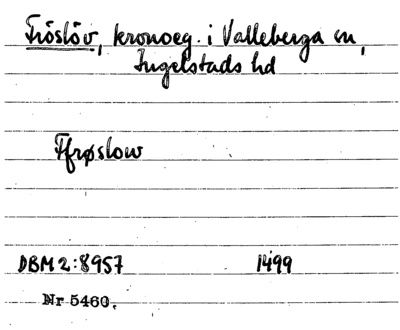 Fröslöv, kronoeg. i Valleberga sn,
Ingelstads hd
Ffrøslow
DBM 2:8957 1499
Nr 5460.